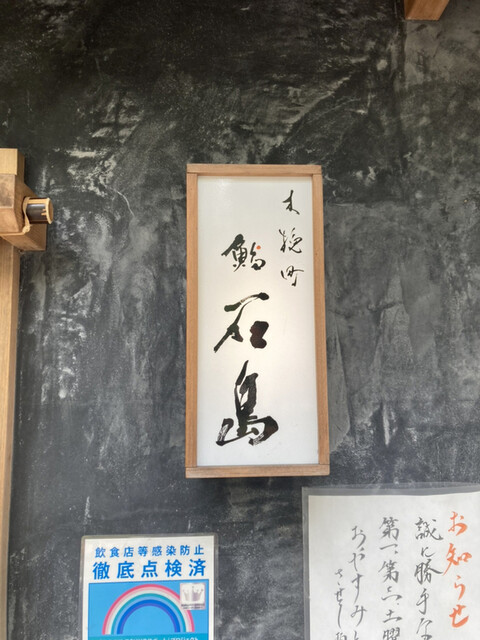 木挽町
鮨
石島
お知らせ
誠に勝手な
第一、第三、土曜
おやすみと
させて
飲食店等感染防止
徹底点検済